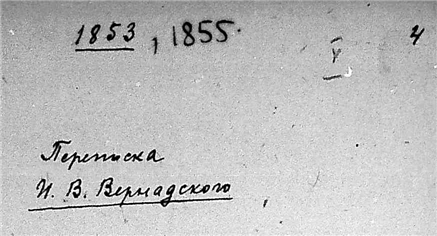 1853, 1855. V 4
Переписка
И. В. Вернадского